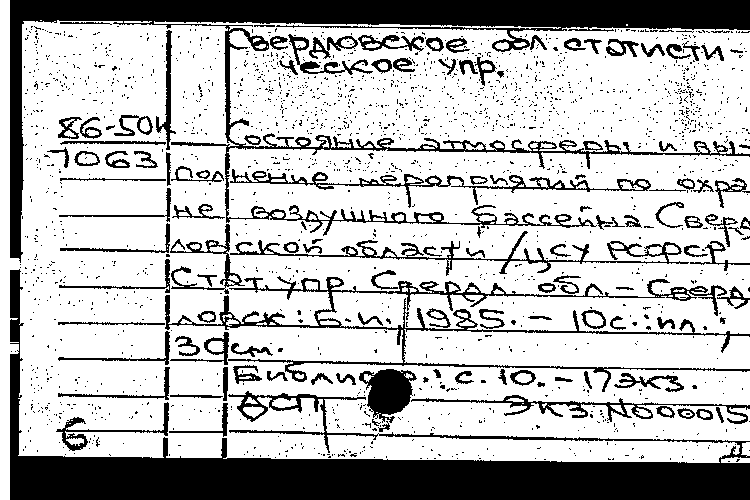 Свердловское обл. статисти-
ческое упр.
86-50к
1063
Состояние атмосферы и вы-
полнение мероприятий по охра
не воздушного бассейна Сверд
ловской области / ЦСУ РСФСР,
Стат. упр. Свердл. обл. - Сверд
ловск: Б.и., 1985. - 10с.: ил.;
30см.
с. 10. - 17 экз.
ДСП
Экз. N000015
б